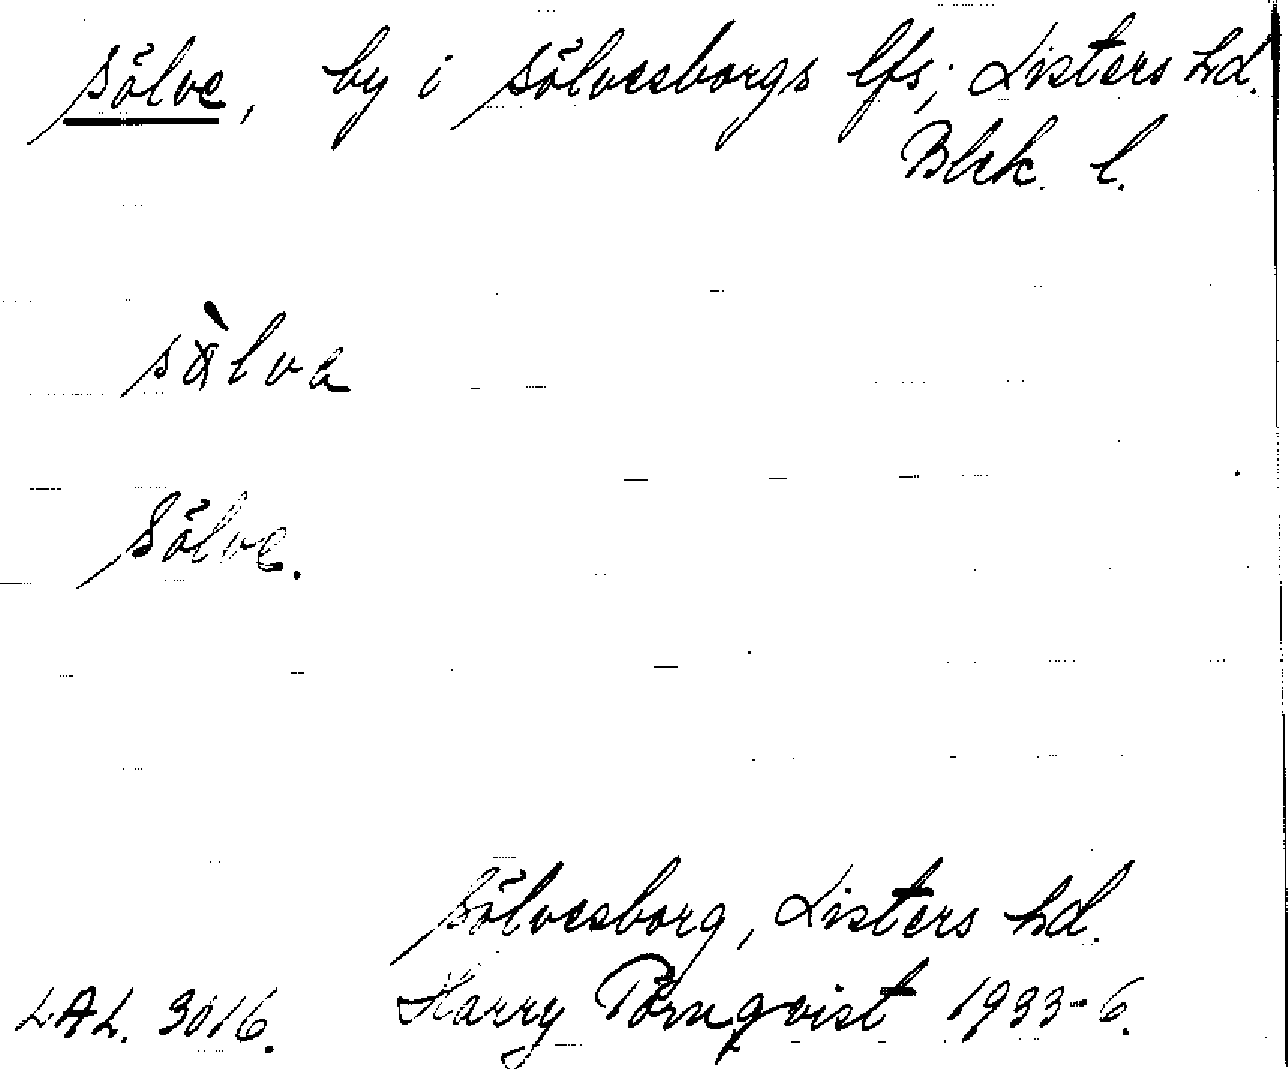 Sölve, by i Sölvesborgs lfs; Listers hd.
Blek. l.
sàlva
Sölve.
Sölvesborg, Listers hd.
LAL. 3016. Harry Törnqvist 1933-6.